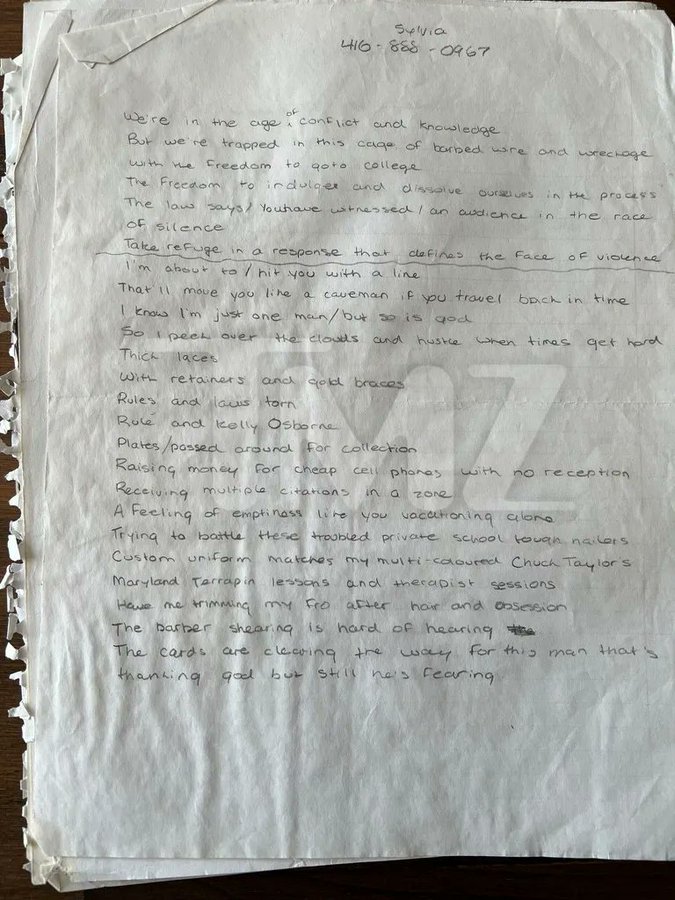 Sylvia
416-888-0967
We're in the age of conflict and knowledge
But we're trapped in this cage of barbed wire and wreckage
With the freedom to goto college
The freedom to indulge and dissolve ourselves in the process
The law says/ You have witnessed/ an audience in the race
of silence
Take refuge in a response that defines the face of violence
I'm about to/ hit you with a line
That'll move you like a caveman if you travel back in time
I know I'm just one man/but so is god
So I peek over the clouds and hustle when times get hard
Thick laces
With retainers and gold braces
Rules and laws torn
Rule and Kelly Osborne
Plates/passed around for collection
Raising money for cheap cell phones with no reception
Receiving multiple citations in a zone
A feeling of emptiness like you vacationing alone
Trying to battle these troubled private school tough nailers
Custom uniform matches my multi-coloured Chuck Taylor's
Maryland Terrapin lessons and therapist sessions
Have me trimming my fro after hair and obsession
The barber shearing is hard of hearing
The cards are clearing the way for this man that's
thanking god but still he's fearing
TMZ